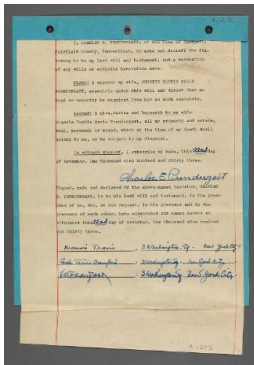 I, CHARLES E. PRENDERGAST, of the Town of Westport,
Fairfield County, Connecticut, do make and declare the fol-
lowing to be my last will and testament, and a revocation
of any wills or codicils heretofore made.
FIRST: I appoint my wife, EUGENIE MARIE
PRENDERGAST, executrix under this will and direct that no
bond or security be required from her as such executrix.
SECOND: I give, devise and bequeath to my wife
Eugenie Marie Prendergast, all my property and estate,
real, personal or mixed, which at the time of my death shall
belong to me, or be subject to my disposal.
In witness whereof, I subscribe my name, this
day
of November, one thousand nine hundred and thirty three.
Charles E Prendergast
Signed, made and declared by the above-named testator, CHARLES
E. PRENDERGAST, to be his last will and testament, in the pres-
ence of us, who, at his request, in his presence and in the
presence of each other, have subscribed our names hereto as
witnesses this
day of November, one thousand nine hundred
and thirty three.
Travis, 3 Washington Sq - New York City
3 Washington Sq New York City
3 Washington Sq New York City